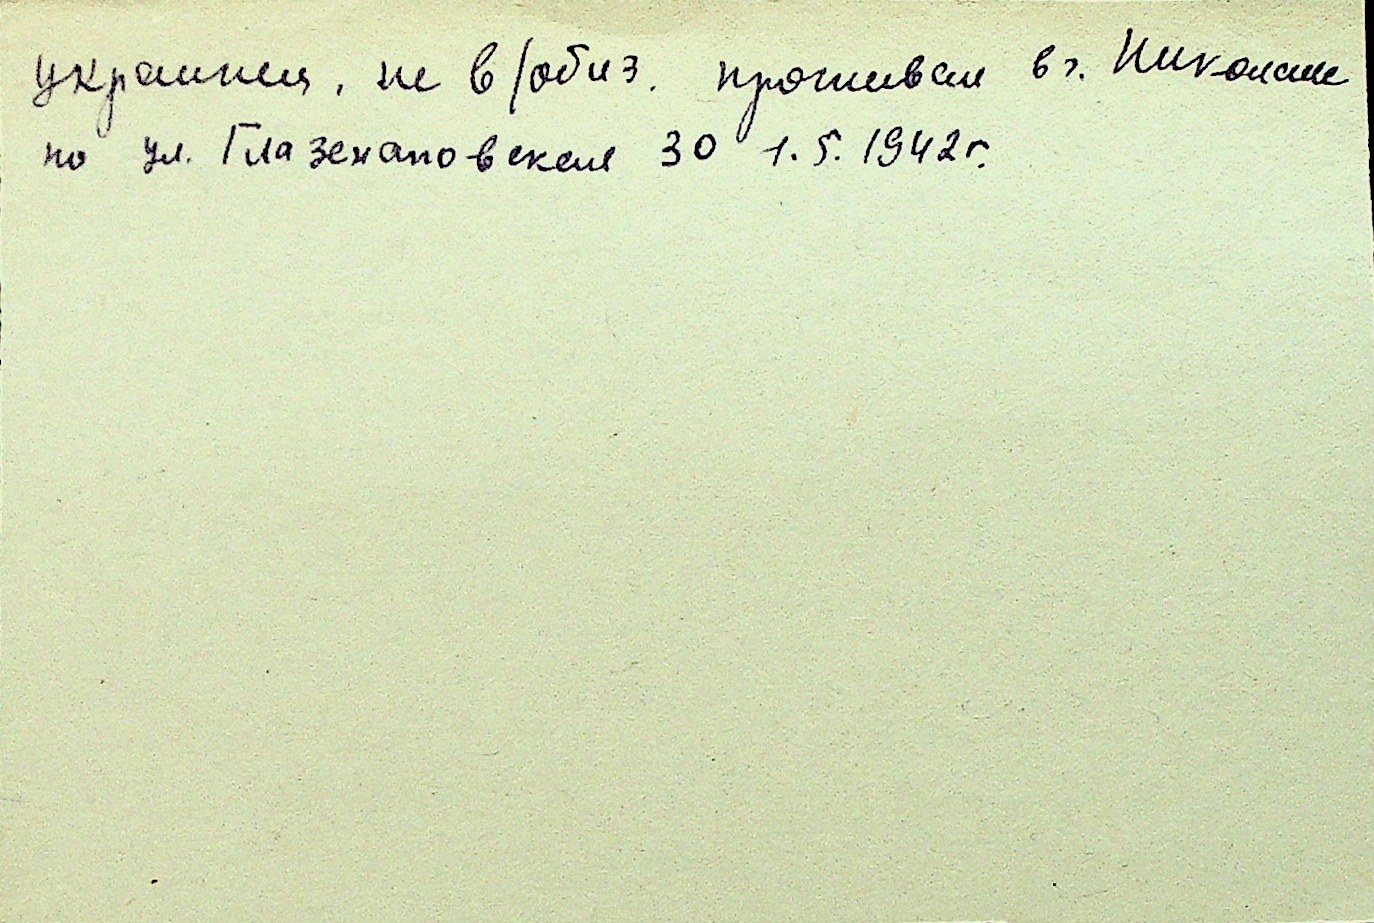 украинец, не в/обяз. проживал в г. Николаеве
по ул. Глазенаповская 30 1.5.1942г.